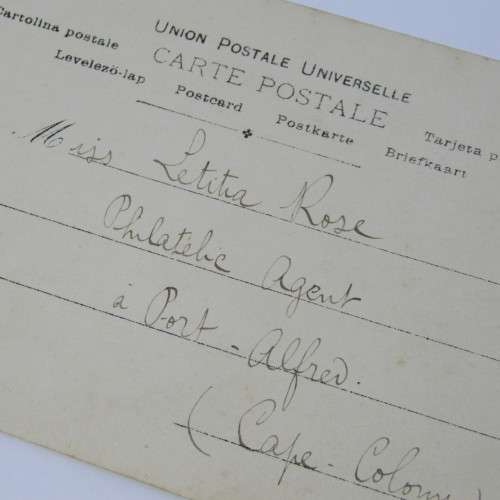 UNION POSTALE UNIVERSELLE
CARTE POSTALE
Cartolina postale
Levelező-lap
Postcard
Postkarte
Tarjeta p
Briefkaart
Miss Letitia Rose
Philatelic Agent
à Port-Alfred.
(Cape-Colony)